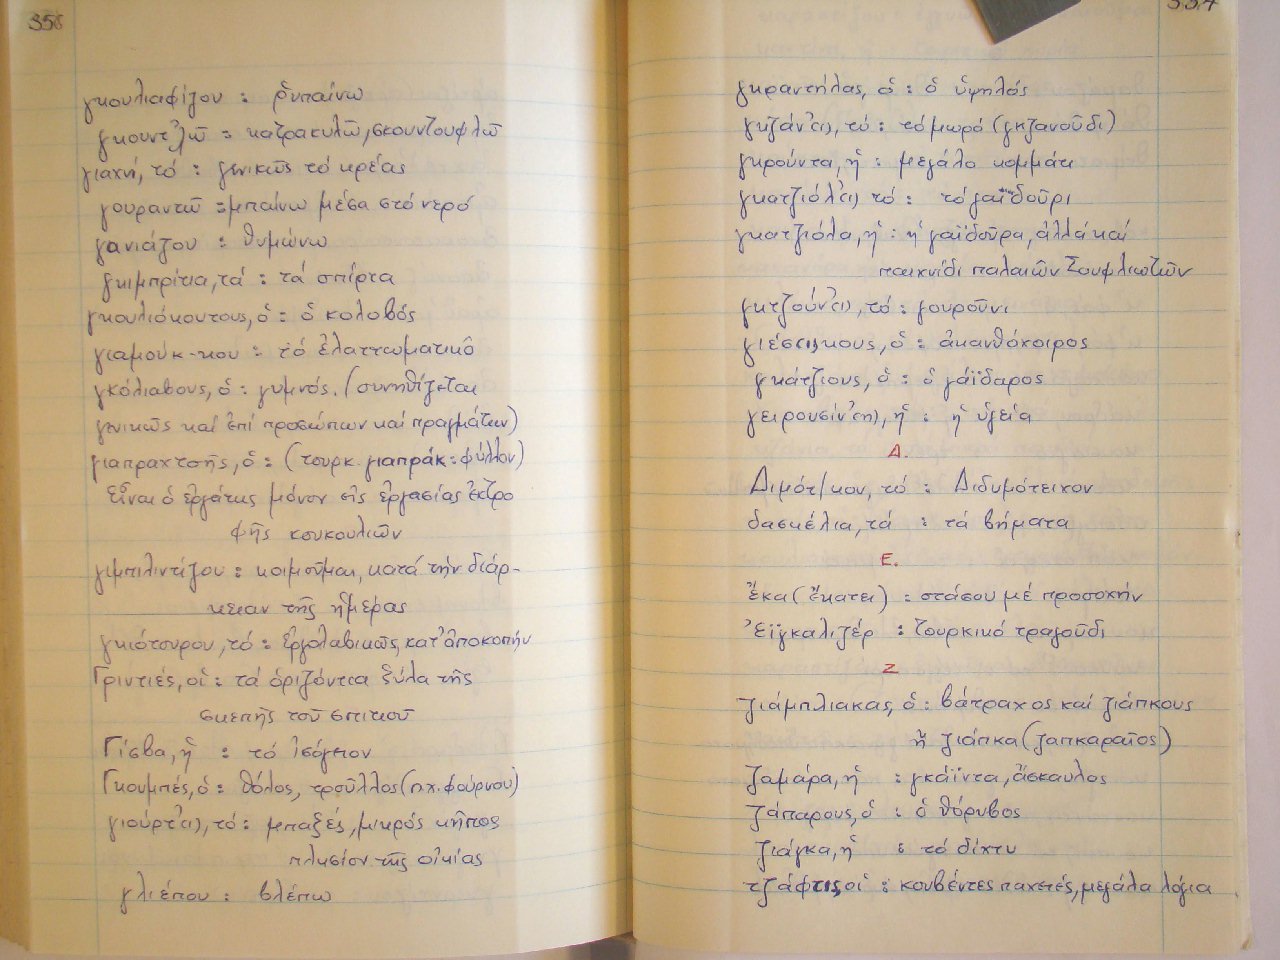 356
γκουλιαφίζου : ῥυπαίνω
γκουντ'λῶ : κατρακυλῶ, σκουντουφλῶ
γιαχνί, τό : γενικῶς τό κρέας
γουραντῶ : μπαίνω μέσα στό νερό
γανιάζου : θυμώνω
γκιμπρίτια, τά : τά σπίρτα
γκουλιόκουτους, ὁ : ὁ κολοβός
γιαμούκ-κου : τό ἐλαττωματικό
γκόλιαβους, ὁ : γυμνός. (συνηθίζεται
γενικῶς καί ἐπί προσώπων καί πραγμάτων)
γιαπραχτσῆς, ὁ : (τουρκ. γιαπράκ : φύλλον)
Εἶναι ὁ ἐργάτης μόνον εἰς ἐργασίας ἐκτρο
φῆς κουκουλιῶν
γιμπιλιντίζου : κοιμοῦμαι, κατά τήν διάρ-
κειαν τῆς ἡμέρας
γκιότουρου, τό : ἐργολαβικῶς, κατ' ἀποκοπήν
Γριντιές, οἱ : τά ὁριζόντια ξύλα τῆς
σκεπῆς τοῦ σπιτιοῦ
Γίσβα, ἡ : τό ἰσόγειον
Γκουμπές, ὁ : θόλος, τροῦλλος (π.χ. φούρνου)
γιούρτ'(ι), τό : μπαξές, μικρός κῆπος
πλησίον τῆς οἰκίας
γλιέπου : βλέπω
357
γκραντήλας, ὁ : ὁ ὑψηλός
γκζάν'(ι), τό : τό μωρό (γκζανοῦδι)
γκρούντα, ἡ : μεγάλο κομμάτι
γκατζιόλ'(ι) τό : τό γαϊδοῦρι
γκατζιόλα, ἡ : ἡ γαϊδοῦρα, ἀλλά καί
παιχνίδι παλαιῶν Σουφλιωτῶν
γκτζούν'(ι), τό : γουροῦνι
γιέσ(ι)κους, ὁ : ἀκανθόχοιρος
γκάτζιους, ὁ : ὁ γάϊδαρος
γειρουσίν'(η), ἡ : ἡ ὑγεία
Δ.
Διμότ/κον, τό : Διδυμότειχον
δασκέλια, τά : τά βήματα
Ε.
ἔκα (ἔκατει) : στάσου μέ προσοχήν
Ἐϊγκαλιζέρ : τουρκικό τραγοῦδι
Ζ
ζιάμπλιακας, ὁ : βάτραχος καί ζιάπκους
ἤ ζιάπκα (ζαπκαραῖος)
ζαμάρα, ἡ : γκάϊντα, ἄσκαυλος
ζάπαρους, ὁ : ὁ θόρυβος
ζιάγκα, ἡ : τό δίχτυ
τζάφτις, οἱ : κουβέντες παχειές, μεγάλα λόγια